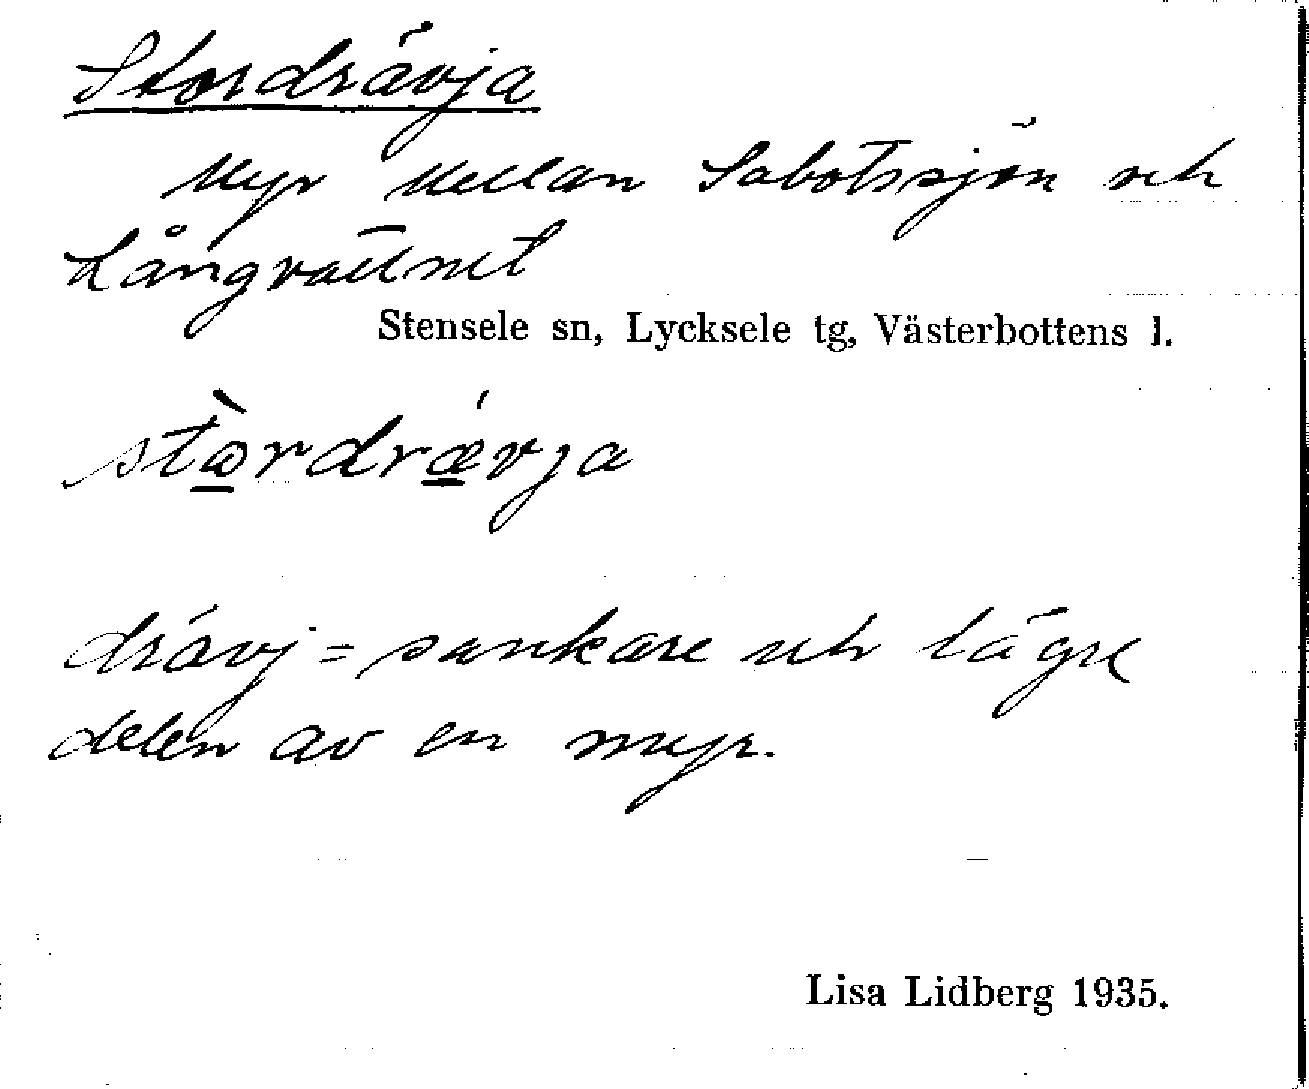 Stordrävja
Myr mellan Sabotssjön och
Långvattnet
Stensele sn, Lycksele tg, Västerbottens l.
stɷ̀rdrǽvja
drävj = sankare och lägre
delen av en myr.
Lisa Lidberg 1935.